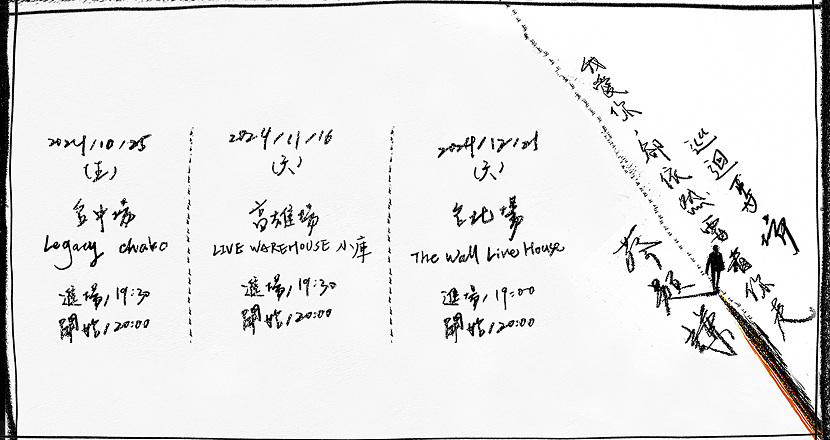 2024/10/25
(五)
台中場
Legacy
進場/19:30
開始/20:00
2024/11/16
(六)
高雄場
LIVE WAREHOUSE 小庫
進場/19:30
開始/20:00
2024/12/21
(六)
台北場
The Wall Live House
進場/19:00
開始/20:00
我愛你,卻依然 你走
巡迴專場